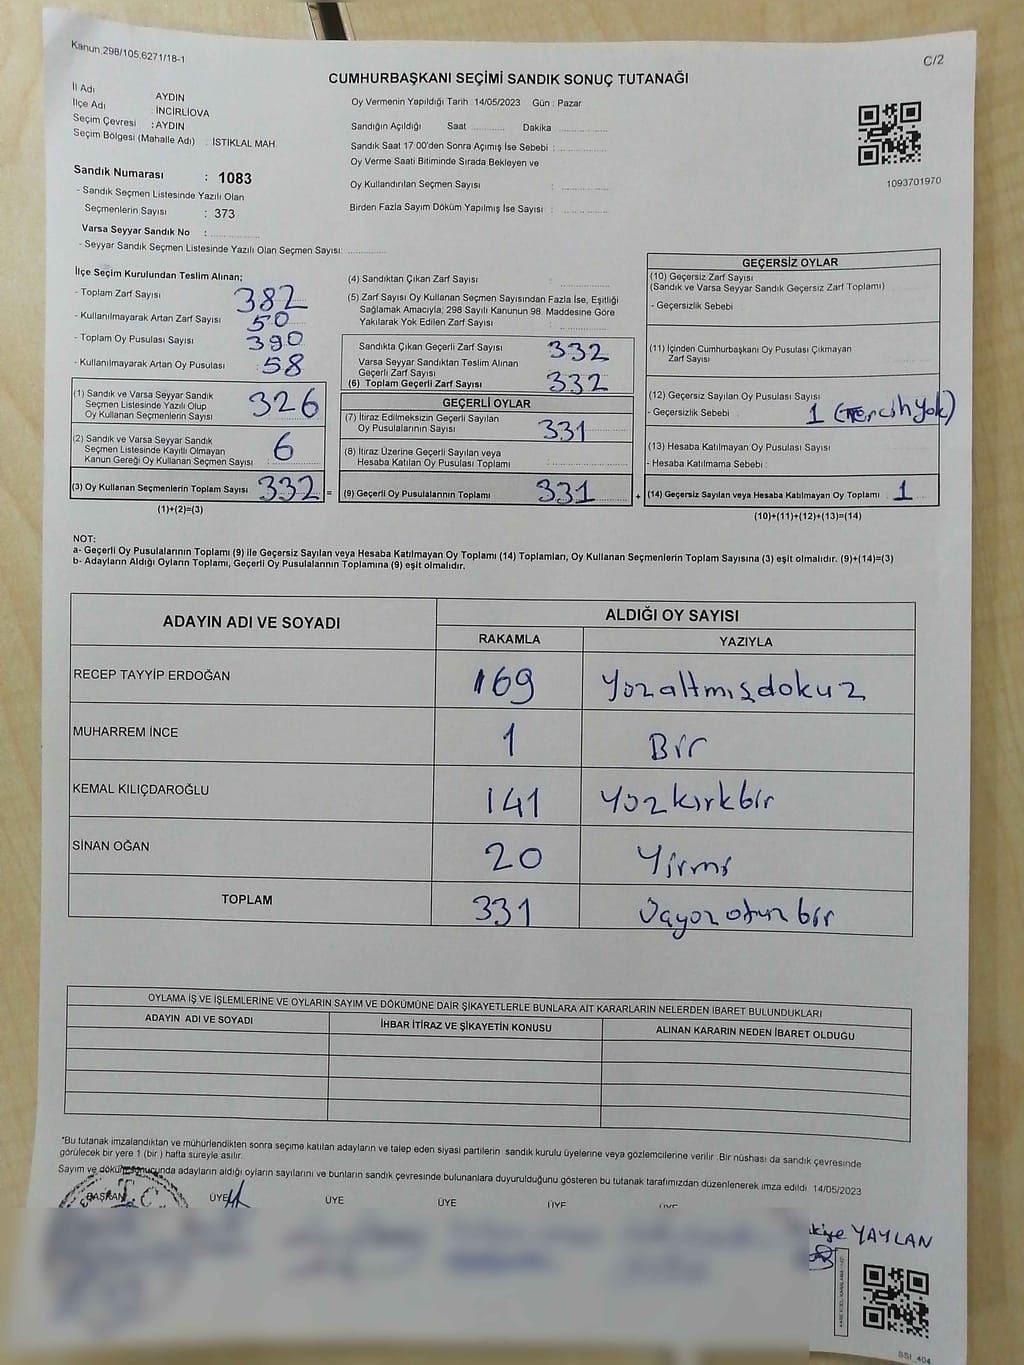 Kanun,298/105,6271/18-1
C/2
CUMHURBAŞKANI SEÇİMİ SANDIK SONUÇ TUTANAĞI
İl Adı AYDIN
İlçe Adı : İNCİRLİOVA
Seçim Çevresi : AYDIN
Seçim Bölgesi (Mahalle Adı) : İSTİKLAL MAH.
Sandık Numarası : 1083
- Sandık Seçmen Listesinde Yazılı Olan
Seçmenlerin Sayısı : 373
Varsa Seyyar Sandık No :
- Seyyar Sandık Seçmen Listesinde Yazılı Olan Seçmen Sayısı:
Oy Vermenin Yapıldığı Tarih : 14/05/2023 Gün : Pazar
Sandığın Açıldığı Saat Dakika
Sandık Saat 17 00'den Sonra Açımış İse Sebebi :
Oy Verme Saati Bitiminde Sırada Bekleyen ve
Oy Kullandırılan Seçmen Sayısı :
Birden Fazla Sayım Döküm Yapılmış İse Sayısı :
1093701970
İlçe Seçim Kurulundan Teslim Alınan;
- Toplam Zarf Sayısı 382
- Kullanılmayarak Artan Zarf Sayısı 50
- Toplam Oy Pusulası Sayısı 390
- Kullanılmayarak Artan Oy Pusulası : 58
(1) Sandık ve Varsa Seyyar Sandık
Seçmen Listesinde Yazılı Olup
Oy Kullanan Seçmenlerin Sayısı 326
(2) Sandık ve Varsa Seyyar Sandık
Seçmen Listesinde Kayıtlı Olmayan
Kanun Gereği Oy Kullanan Seçmen Sayısı 6
(3) Oy Kullanan Seçmenlerin Toplam Sayısı 332 =
(1)+(2)=(3)
(4) Sandıktan Çıkan Zarf Sayısı :
(5) Zarf Sayısı Oy Kullanan Seçmen Sayısından Fazla İse, Eşitliği
Sağlamak Amacıyla; 298 Sayılı Kanunun 98. Maddesine Göre
Yakılarak Yok Edilen Zarf Sayısı :
Sandıkta Çıkan Geçerli Zarf Sayısı 332
Varsa Seyyar Sandıktan Teslim Alınan
Geçerli Zarf Sayısı
(6) Toplam Geçerli Zarf Sayısı 332
GEÇERLİ OYLAR
(7) İtiraz Edilmeksizin Geçerli Sayılan
Oy Pusulalarının Sayısı 331
(8) İtiraz Üzerine Geçerli Sayılan veya
Hesaba Katılan Oy Pusulası Toplamı :
(9) Geçerli Oy Pusulalarının Toplamı 331 +
GEÇERSİZ OYLAR
(10) Geçersiz Zarf Sayısı
(Sandık ve Varsa Seyyar Sandık Geçersiz Zarf Toplamı)
- Geçersizlik Sebebi
(11) İçinden Cumhurbaşkanı Oy Pusulası Çıkmayan
Zarf Sayısı
(12) Geçersiz Sayılan Oy Pusulası Sayısı
- Geçersizlik Sebebi : 1 (Tercih yok)
(13) Hesaba Katılmayan Oy Pusulası Sayısı
- Hesaba Katılmama Sebebi :
(14) Geçersiz Sayılan veya Hesaba Katılmayan Oy Toplamı : 1
(10)+(11)+(12)+(13)=(14)
NOT:
a- Geçerli Oy Pusulalarının Toplamı (9) ile Geçersiz Sayılan veya Hesaba Katılmayan Oy Toplamı (14) Toplamları, Oy Kullanan Seçmenlerin Toplam Sayısına (3) eşit olmalıdır. (9)+(14)=(3)
b- Adayların Aldığı Oyların Toplamı, Geçerli Oy Pusulalarının Toplamına (9) eşit olmalıdır.
ADAYIN ADI VE SOYADI ALDIĞI OY SAYISI
RAKAMLA YAZIYLA
RECEP TAYYİP ERDOĞAN 169 Yüzaltmışdokuz
MUHARREM İNCE 1 Bir
KEMAL KILIÇDAROĞLU 141 Yüzkırkbir
SİNAN OĞAN 20 Yirmi
TOPLAM 331 Üçyüzotuzbir
OYLAMA İŞ VE İŞLEMLERİNE VE OYLARIN SAYIM VE DÖKÜMÜNE DAİR ŞİKAYETLERLE BUNLARA AİT KARARLARIN NELERDEN İBARET BULUNDUKLARI
ADAYIN ADI VE SOYADI İHBAR İTİRAZ VE ŞİKAYETİN KONUSU ALINAN KARARIN NEDEN İBARET OLDUĞU
*Bu tutanak imzalandıktan ve mühürlendikten sonra seçime katılan adayların ve talep eden siyasi partilerin sandık kurulu üyelerine veya gözlemcilerine verilir .Bir nüshası da sandık çevresinde
görülecek bir yere 1 (bir ) hafta süreyle asılır.
Sayım ve döküm sonucunda adayların aldığı oyların sayılarını ve bunların sandık çevresinde bulunanlara duyurulduğunu gösteren bu tutanak tarafımızdan düzenlenerek imza edildi 14/05/2023
BAŞKAN ÜYE ÜYE ÜYE ÜYE ÜYE
T.C.
YAYLAN
SSI_404